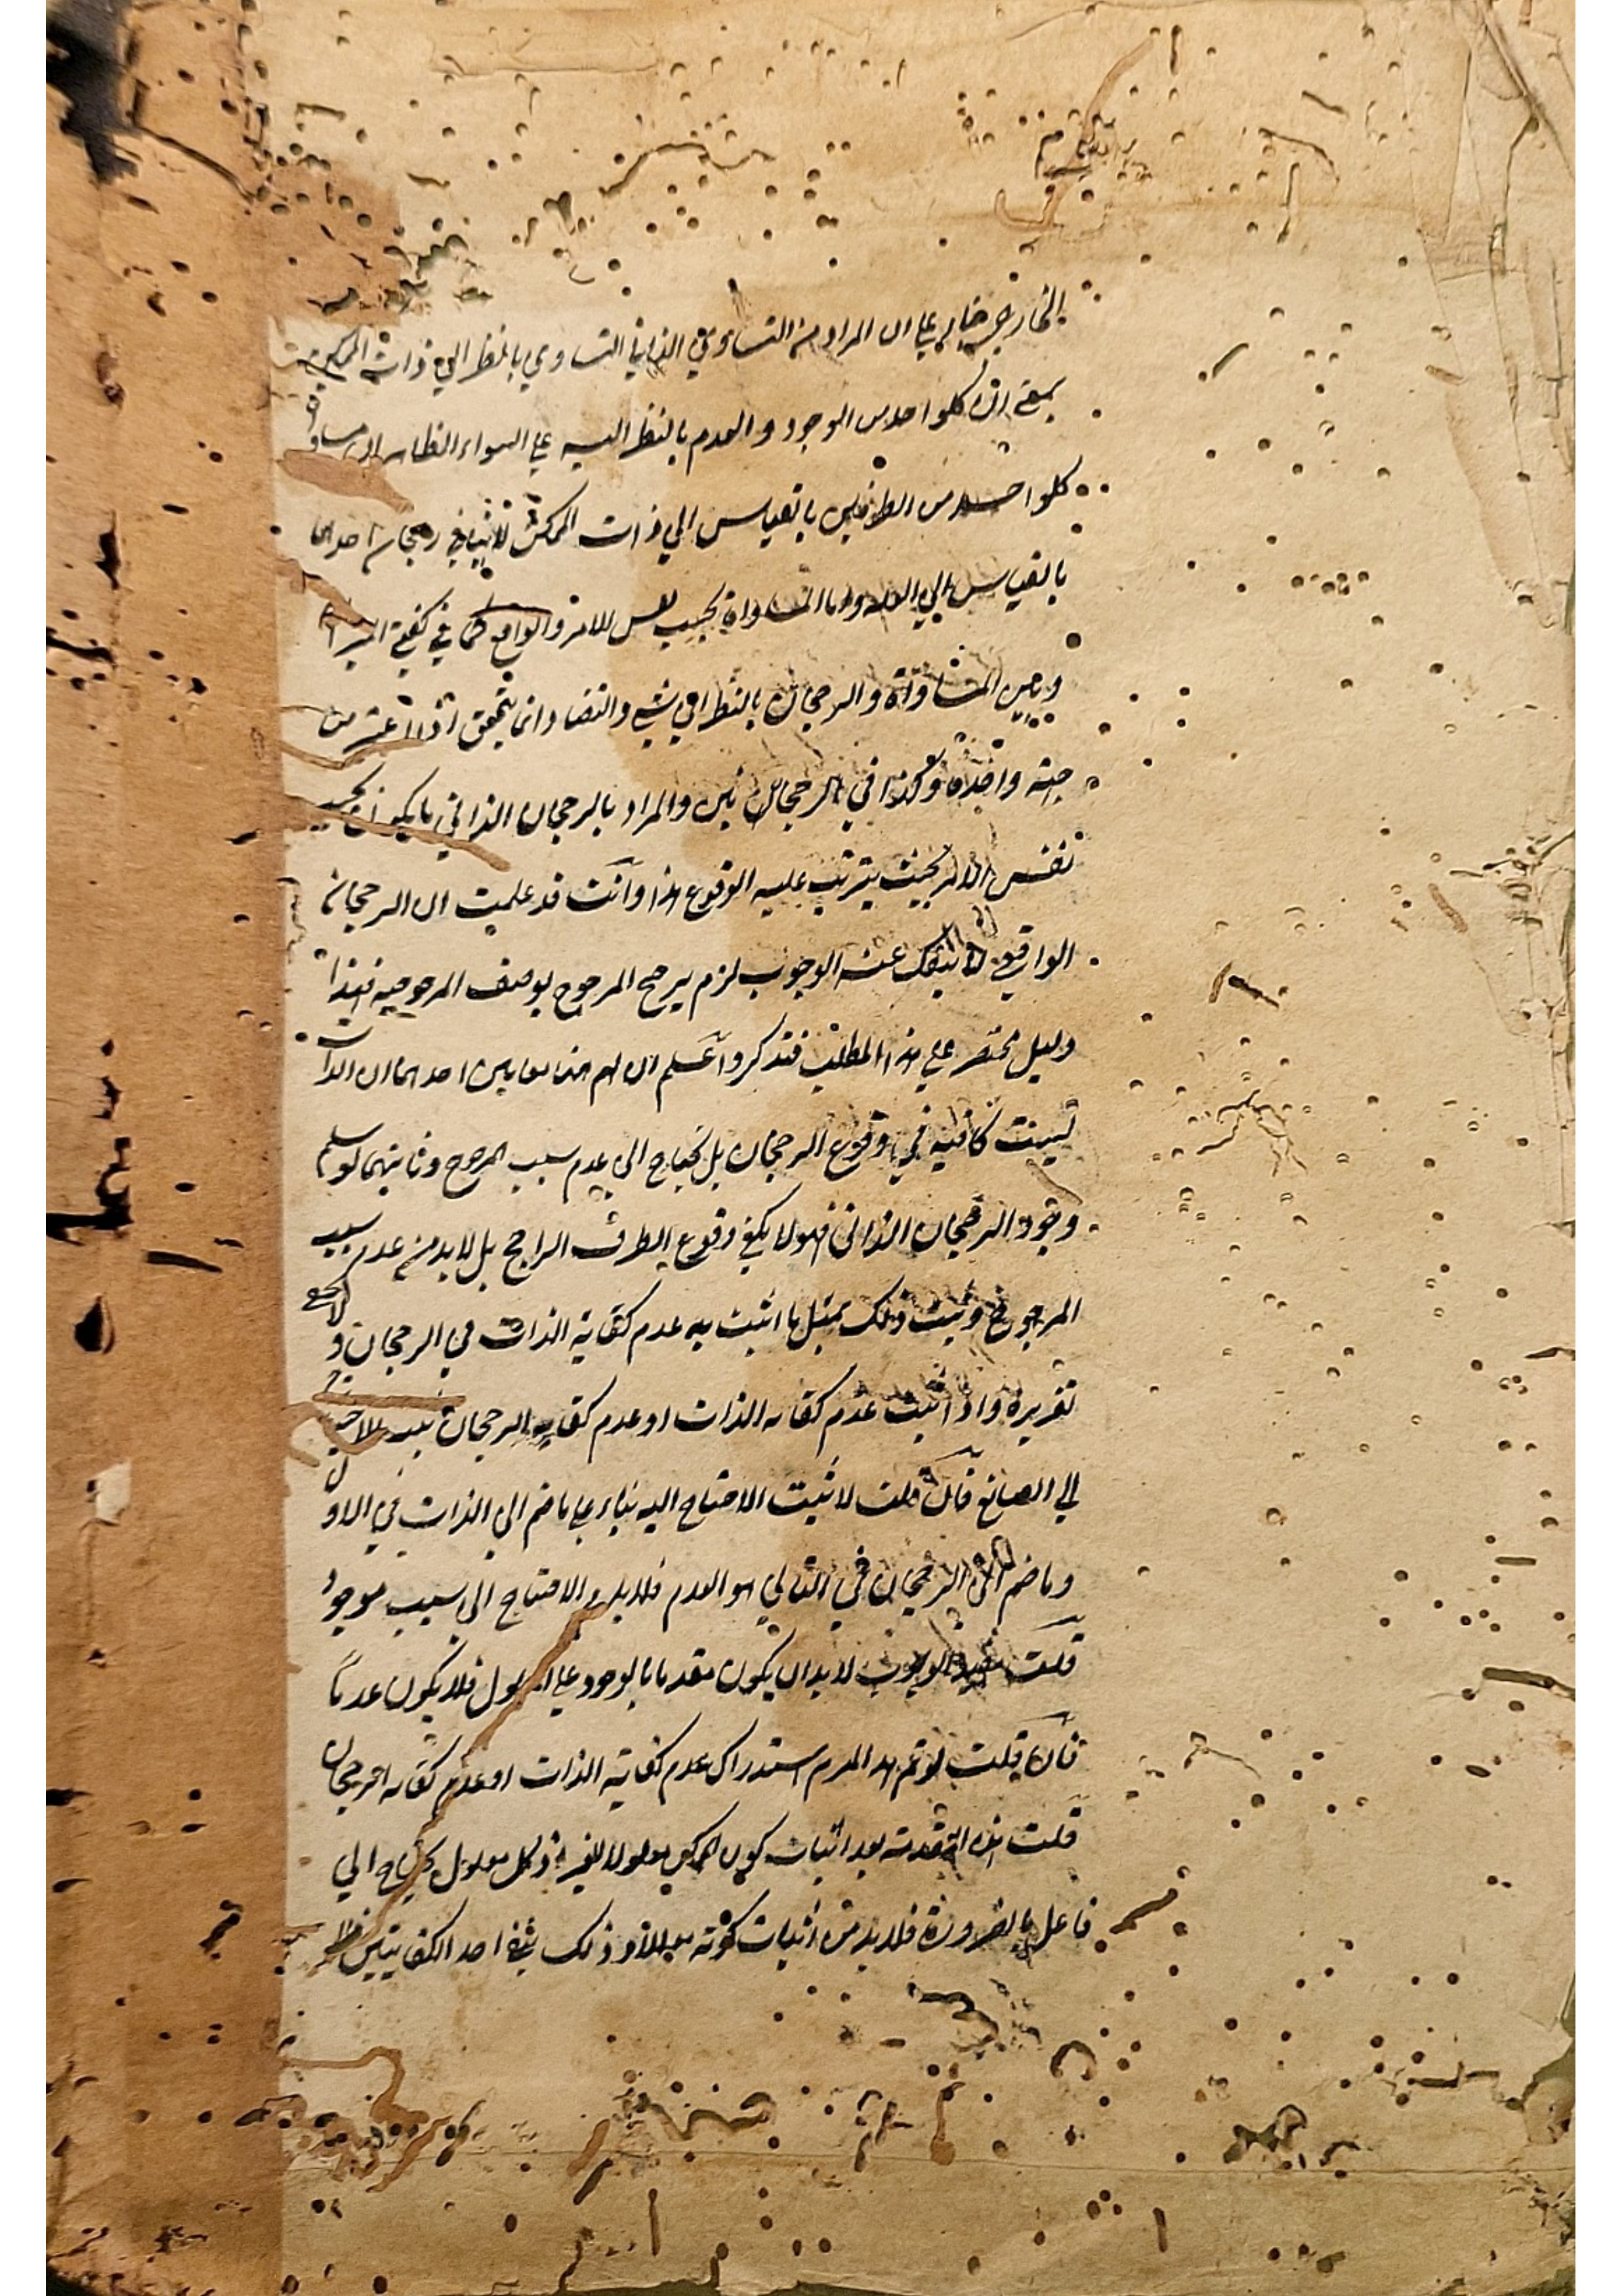 الخارجي على ان المراد من التساوي الذاتي التساوي بالنظر الى ذات الممكن
بمعنى ان كلواحد من الوجود والعدم بالنظر اليه على السواء الظاهر ان مساواة
كلواحد من الطرفين بالقياس الى ذات الممكن لا ينافي رجحان احدهما
بالقياس الى العلة واما المساواة بحسب نفس الامر والواقع كما في كفتي الميزان
وبين المساواة والرجحان بالنظر الى شيء والتضاد انما يتحقق اذا اعتبر من
جهة واحدة وكذا في الرجحانين والمراد بالرجحان الذاتي ما يكون بحسب
نفس الامر بحيث يترتب عليه الوقوع هذا وانت قد علمت ان الرجحان
الواقعي لا ينفك عنه الوجوب لزم ترجح المرجوح بوصف المرجوحيه فهذا
دليل مختصر على هذا المطلب فتذكر واعلم ان لهم مقامين احدهما ان الذات
ليست كافيه في وقوع الرجحان بل يحتاج الى عدم سبب المرجوح وثانيهما لو سلم
وجود الرجحان الذاتي فهو لا يكفي وقوع الطرف الراجح بل لا بد من عدم سبب
المرجوح وثبت ذلك بمثل ما اثبت به عدم كفاية الذات في الرجحان و لا يخفى
تقريره واذا اثبت عدم كفايه الذات او عدم كفايه الرجحان ثبت الاحتياج
الى الصانع فان قلت لا يثبت الاحتياج اليه بناء على ما ضم الى الذات في الاول
وما ضم الى الرجحان في الثاني هو العدم فلا يلزم الاحتياج الى سبب موجود
قلت مفيد الوجوب لا بد ان يكون مقدما بالوجود على المعلول فلا يكون عدميا
فان قلت لو تم هذا لزم استدراك عدم كفاية الذات او عدم كفايه الرجحان
قلت هذه المقدمة بعد اثبات كون الممكن معلولا للغير اذ كل معلول يحتاج الى
فاعل بالضرورة فلا بد من اثبات كونه معللا وذلك بنفي احد الكفايتين